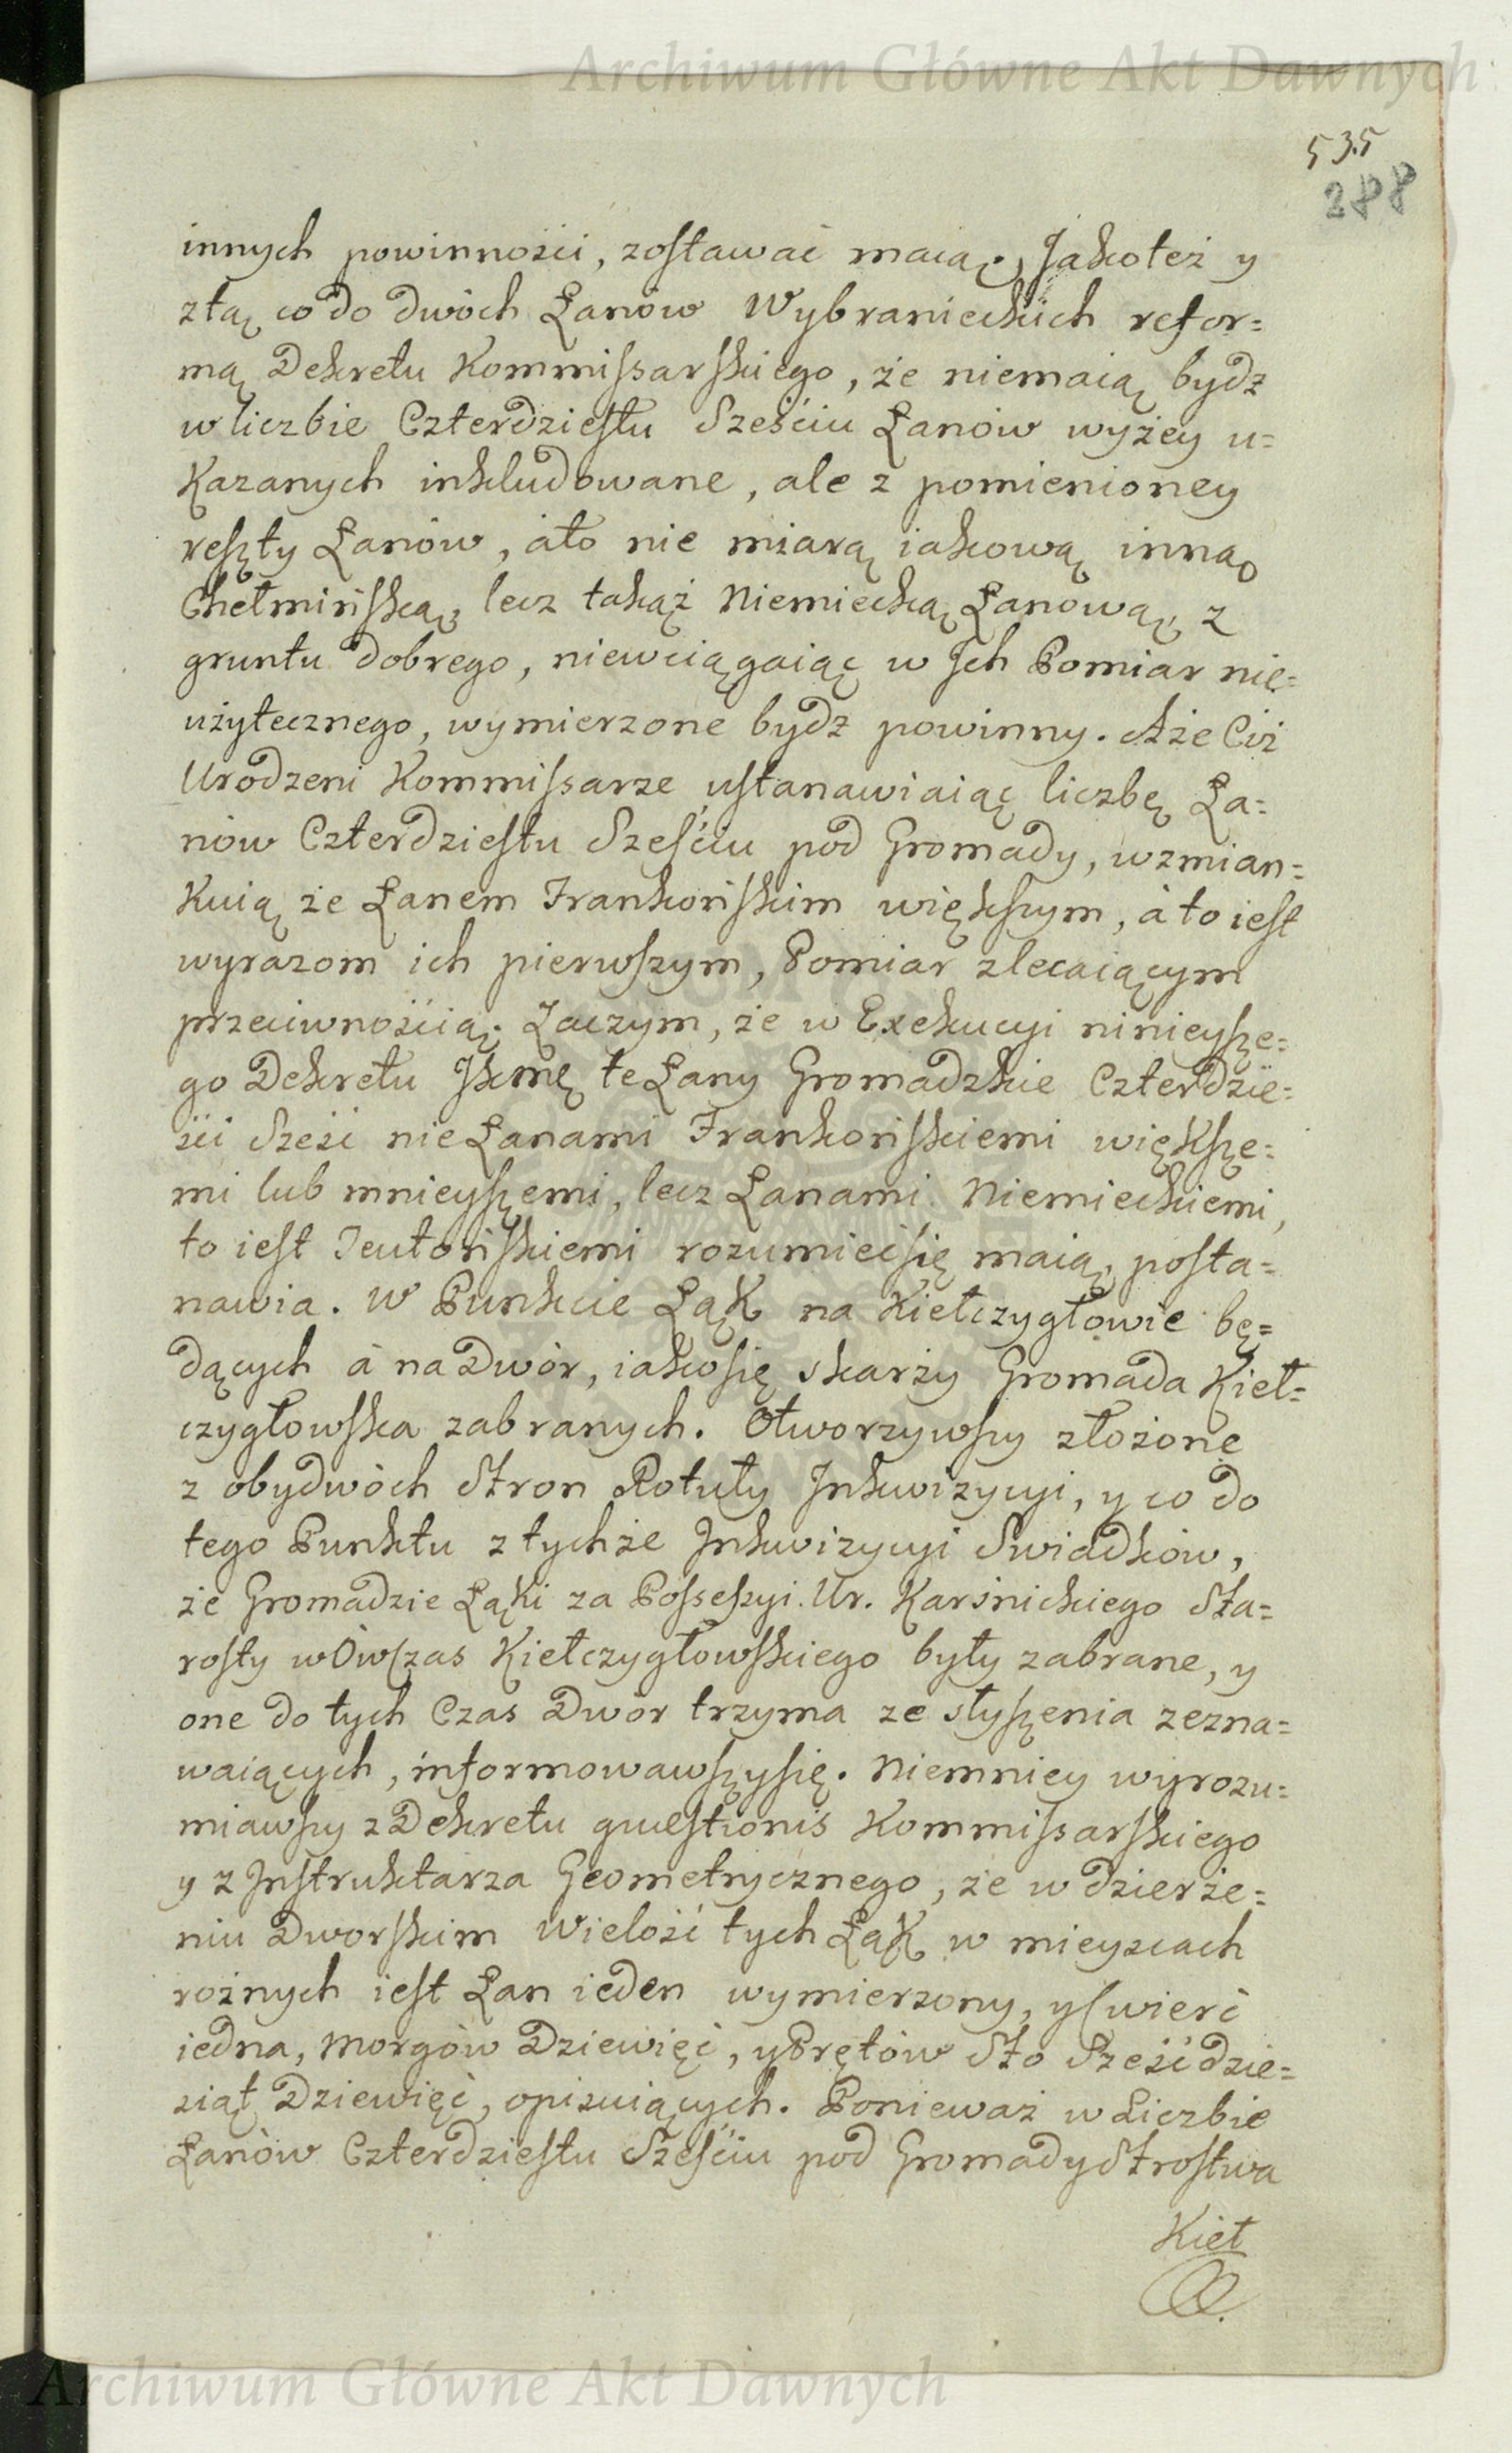 Archiwum Główne Akt Dawnych
535
288
innych powinności, zostawać maią, Jakoteż y
ztą co do dwóch Łanów Wybranieckich refor=
mą Dekretu Kommissarskiego, że niemaią bydz
w liczbie Czterdziestu Sześciu Łanów wyżey u=
kazanych inkludowane, ale z pomienioney
reszty Łanów, áto nie miarą iakową inną
Chełmińską, lecz takąż Niemiecką Łanową, z
gruntu dobrego, niewciągaiąc w Jch Pomiar nie=
użytecznego, wymierzone bydz powinny. Aże Ciż
Urodzeni Kommissarze ustanawiaiąc liczbę Ła=
nów Czterdziestu Sześciu pod Gromady, wzmian=
kuią że Łanem Frankońskim większym, á to iest
wyrazom ich pierwszym, Pomiar zlecaiącym
przeciwnością. Zaczym, że w Exekucyi ninieysze=
go Dekretu Jkmę te Łany Gromadzkie Czterdzie=
ści Sześć nie Łanami Frankońskiemi większe=
mi lub mnieyszemi, lecz Łanami Niemieckiemi,
to iest Teutońskiemi rozumiećsię maią, posta=
nawia. W Punkcie Łąk na Kiełczygłowie bę=
dących á na Dwór, iakosię skarży Gromada Kieł=
czygłowska zabranych. Otworzywszy złożone
z obydwóch Stron Rotuły Jnkwizycyi, y co do
tego Punktu z tychże Jnkwizycyi Swiadków,
że Gromadzie Łąki za Possessyi Ur. Karśnickiego Sta=
rosty wOwczas Kiełczygłowskiego były zabrane, y
one do tych Czas Dwór trzyma ze słyszenia zezna=
waiących, informowawszysię. Niemniey wyrozu=
miawszy z Dekretu quæstionis Kommissarskiego
y z Jnstruktarza Geometrycznego, że w dzierże=
niu Dworskim Wielość tych Łąk w mieyscach
rożnych iest Łan ieden wymierzony, yćwierć
iedna, Morgów Dziewięć, yPrętów Sto Sześćdzie=
siąt Dziewięć, opisuiących. Ponieważ w Liczbie
Łanów Czterdziestu Sześciu pod Gromady Strostwa
Kieł
Archiwum Główne Akt Dawnych